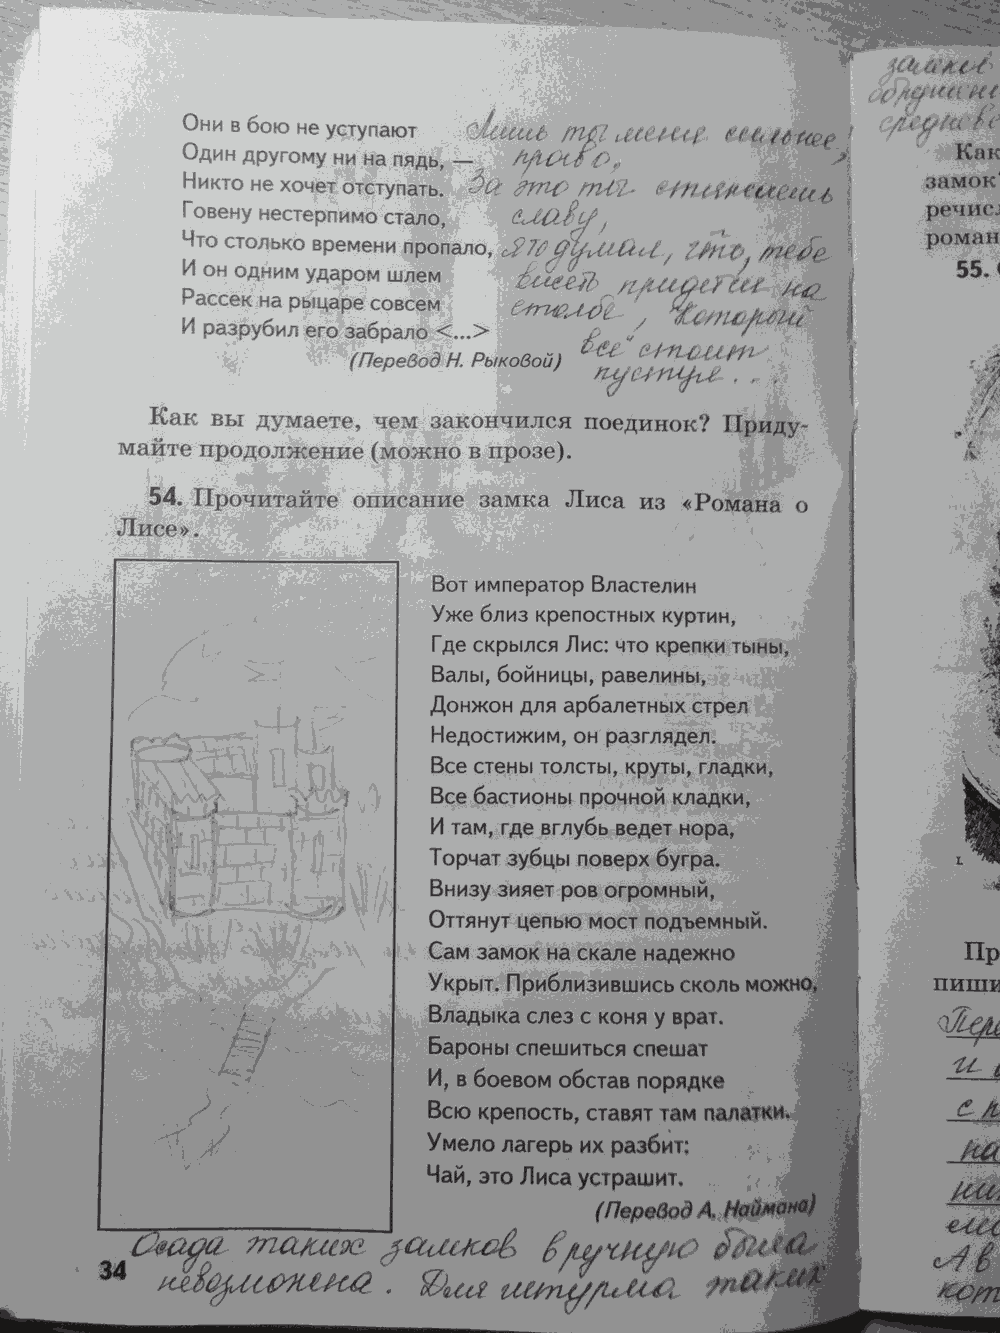 Они в бою не уступают
Один другому ни на пядь, —
Никто не хочет отступать.
Говену нестерпимо стало,
Что столько времени пропало,
И он одним ударом шлем
Рассек на рыцаре совсем
И разрубил его забрало <...>
(Перевод Н. Рыковой)
Лишь ты меня сильнее,
право,
За это ты стяжаешь
славу,
я то думал, что, тебе
висеть придется на
столбе, который
всё стоит
пустуя...
Как вы думаете, чем закончился поединок? Приду-
майте продолжение (можно в прозе).
54. Прочитайте описание замка Лиса из «Романа о
Лисе».
Вот император Властелин
Уже близ крепостных куртин,
Где скрылся Лис: что крепки тыны,
Валы, бойницы, равелины,
Донжон для арбалетных стрел
Недостижим, он разглядел.
Все стены толсты, круты, гладки,
Все бастионы прочной кладки,
И там, где вглубь ведет нора,
Торчат зубцы поверх бугра.
Внизу зияет ров огромный,
Оттянут цепью мост подъемный.
Сам замок на скале надежно
Укрыт. Приблизившись сколь можно,
Владыка слез с коня у врат.
Бароны спешиться спешат
И, в боевом обстав порядке
Всю крепость, ставят там палатки.
Умело лагерь их разбит:
Чай, это Лиса устрашит.
(Перевод А. Наймана)
Осада таких замков вручную была
невозможена. Для штурма таких
34
замков
Как
замок
речис
роман
55.
Пр
пиши
Пере
и
с
на
А в
кот